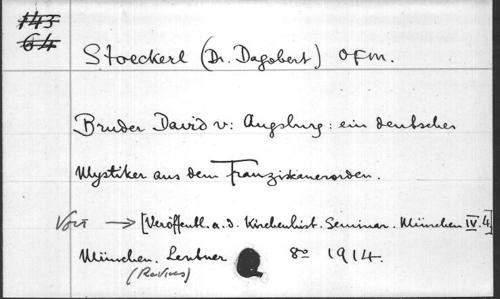 143
64
Stoeckerl (Dr. Dagobert) OFM.
Bruder David v: Augsburg: ein deutscher
Mystiker aus dem Franziskanerorden.
→ [Veröffentl. a. d. Kirchenhist. Seminar. München IV. 4]
München. Lentner 8º 1914.